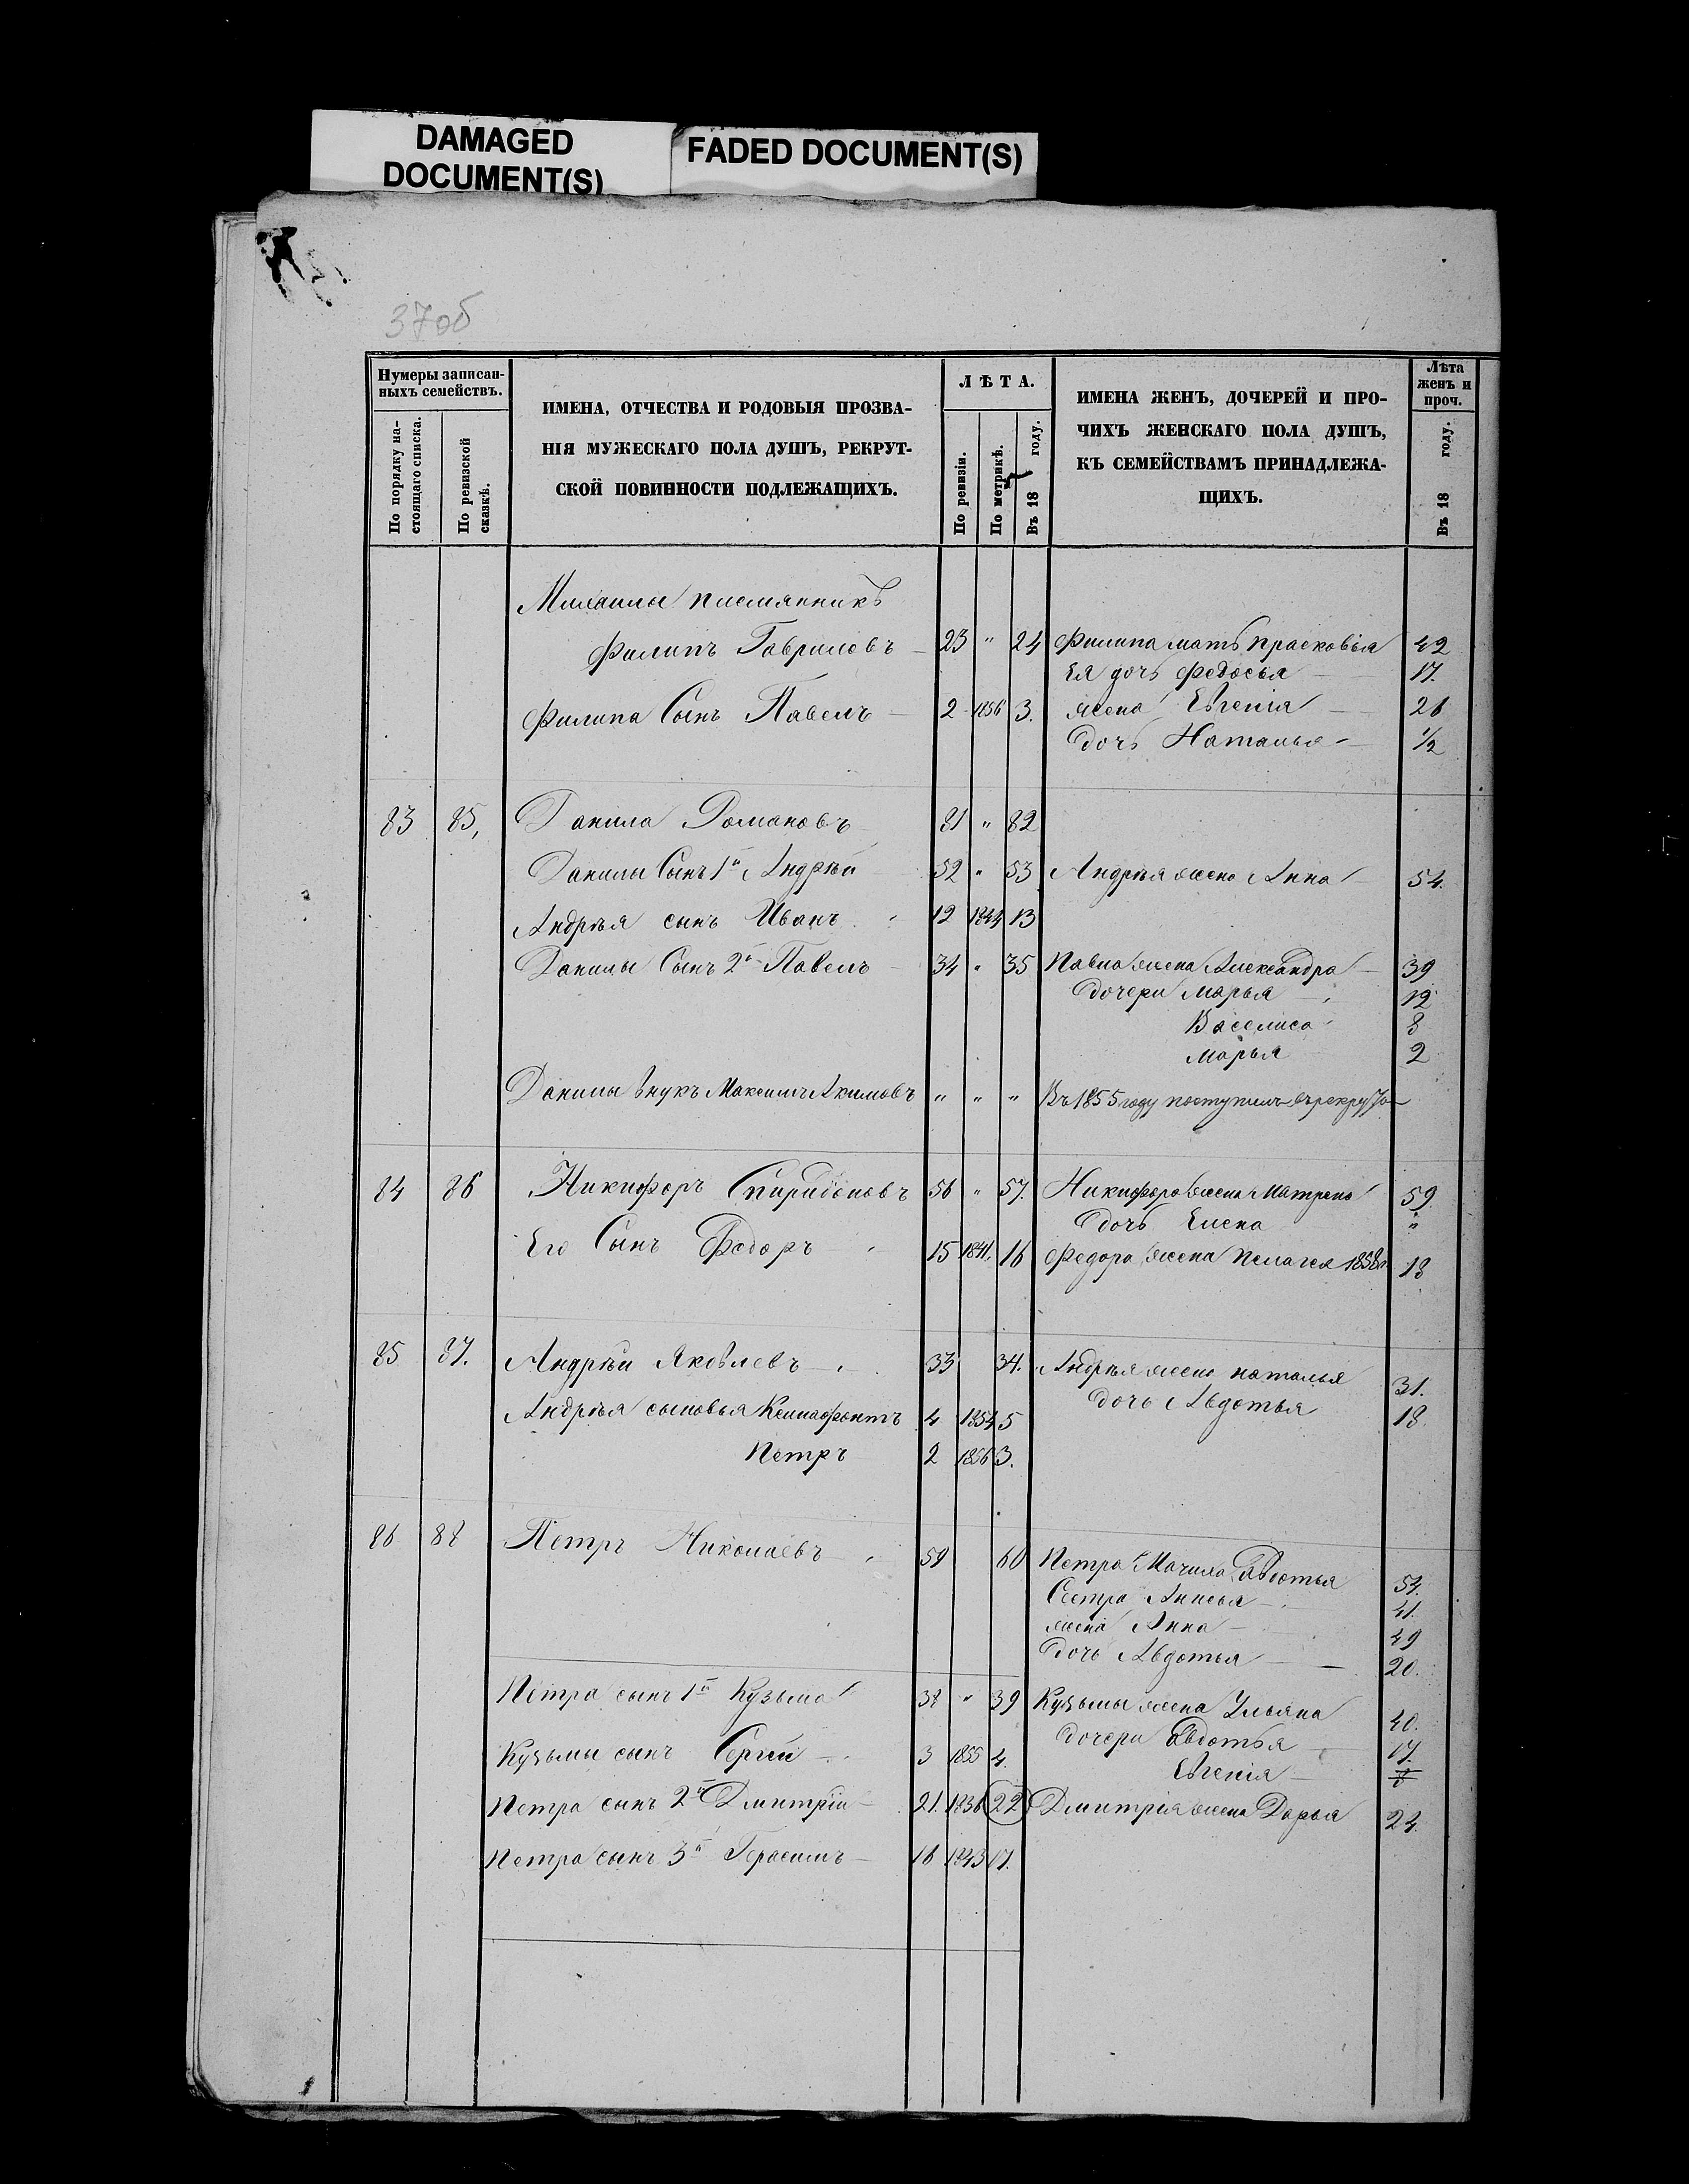 DAMAGED
DOCUMENT(S)
FADED DOCUMENT(S)
37об
Нумеры записан-
ныхъ семействъ.
По порядку на-
стоящаго списка.
По ревизской
сказкѣ.
ИМЕНА, ОТЧЕСТВА И РОДОВЫЯ ПРОЗВА-
НІЯ МУЖЕСКАГО ПОЛА ДУШЪ, РЕКРУТ-
СКОЙ ПОВИННОСТИ ПОДЛЕЖАЩИХЪ.
ЛѢТА.
По ревизіи.
По метрикѣ.
Въ 18 году.
ИМЕНА ЖЕНЪ, ДОЧЕРЕЙ И ПРО-
ЧИХЪ ЖЕНСКАГО ПОЛА ДУШЪ,
КЪ СЕМЕЙСТВАМЪ ПРИНАДЛЕЖА-
ЩИХЪ.
Лѣта
женъ и
проч.
Въ 18 году.
Михаилы племянникъ
Филипъ Гавриловъ — 23 " 24 Филипа мать Прасковія 42
Ея дочь Федосья — 17.
Филипа Сынъ Павелъ — 2 1856 3. жена Евгенія — 26
дочь Наталья — 1/2
83 85, Данила Романовъ 81 " 82
Данилы Сынъ 1й Андрѣй 52 " 53 Андрѣя жена Анна — 54.
Андрѣя сынъ Иванъ 12 1844 13
Данилы Сынъ 2й Павелъ — 34 " 35 Павла жена Александра — 39
дочери Марья — 12
Василиса 8
Марья 2
Данилы внукъ Максимъ Акимовъ " " " Въ 1855 году поступилъ въ рекруты
84 86 Никифоръ Спиридоновъ 56 " 57. Никифора жена Матрена 59.
дочь Елена "
Его Сынъ Федоръ 15 1841. 16 Федора жена Пелагея 1858 18
85 87. Андрѣй Яковлевъ — 33 34. Андрѣя жена Наталья 31.
дочь Авдотья 18
Андрѣя сыновья Ксенофонтъ 4 1854 5
Петръ 2 1856 3.
86 88 Петръ Николаевъ 59 60 Петра Мачиха Авдотья 54.
Сестра Анисья — 41.
жена Анна — 49
дочь Авдотья — 20.
Петра сынъ 1й Кузьма 38 " 39 Кузьмы жена Ульяна 40.
дочери Авдотья — 17.
Кузьмы сынъ Сергѣй — 3 1855 4.
Евгенія —
Петра сынъ 2й Дмитрій — 21. 1836 22 Дмитрія жена Дарья 24.
Петра сынъ 3й Герасимъ — 16 1843 17.